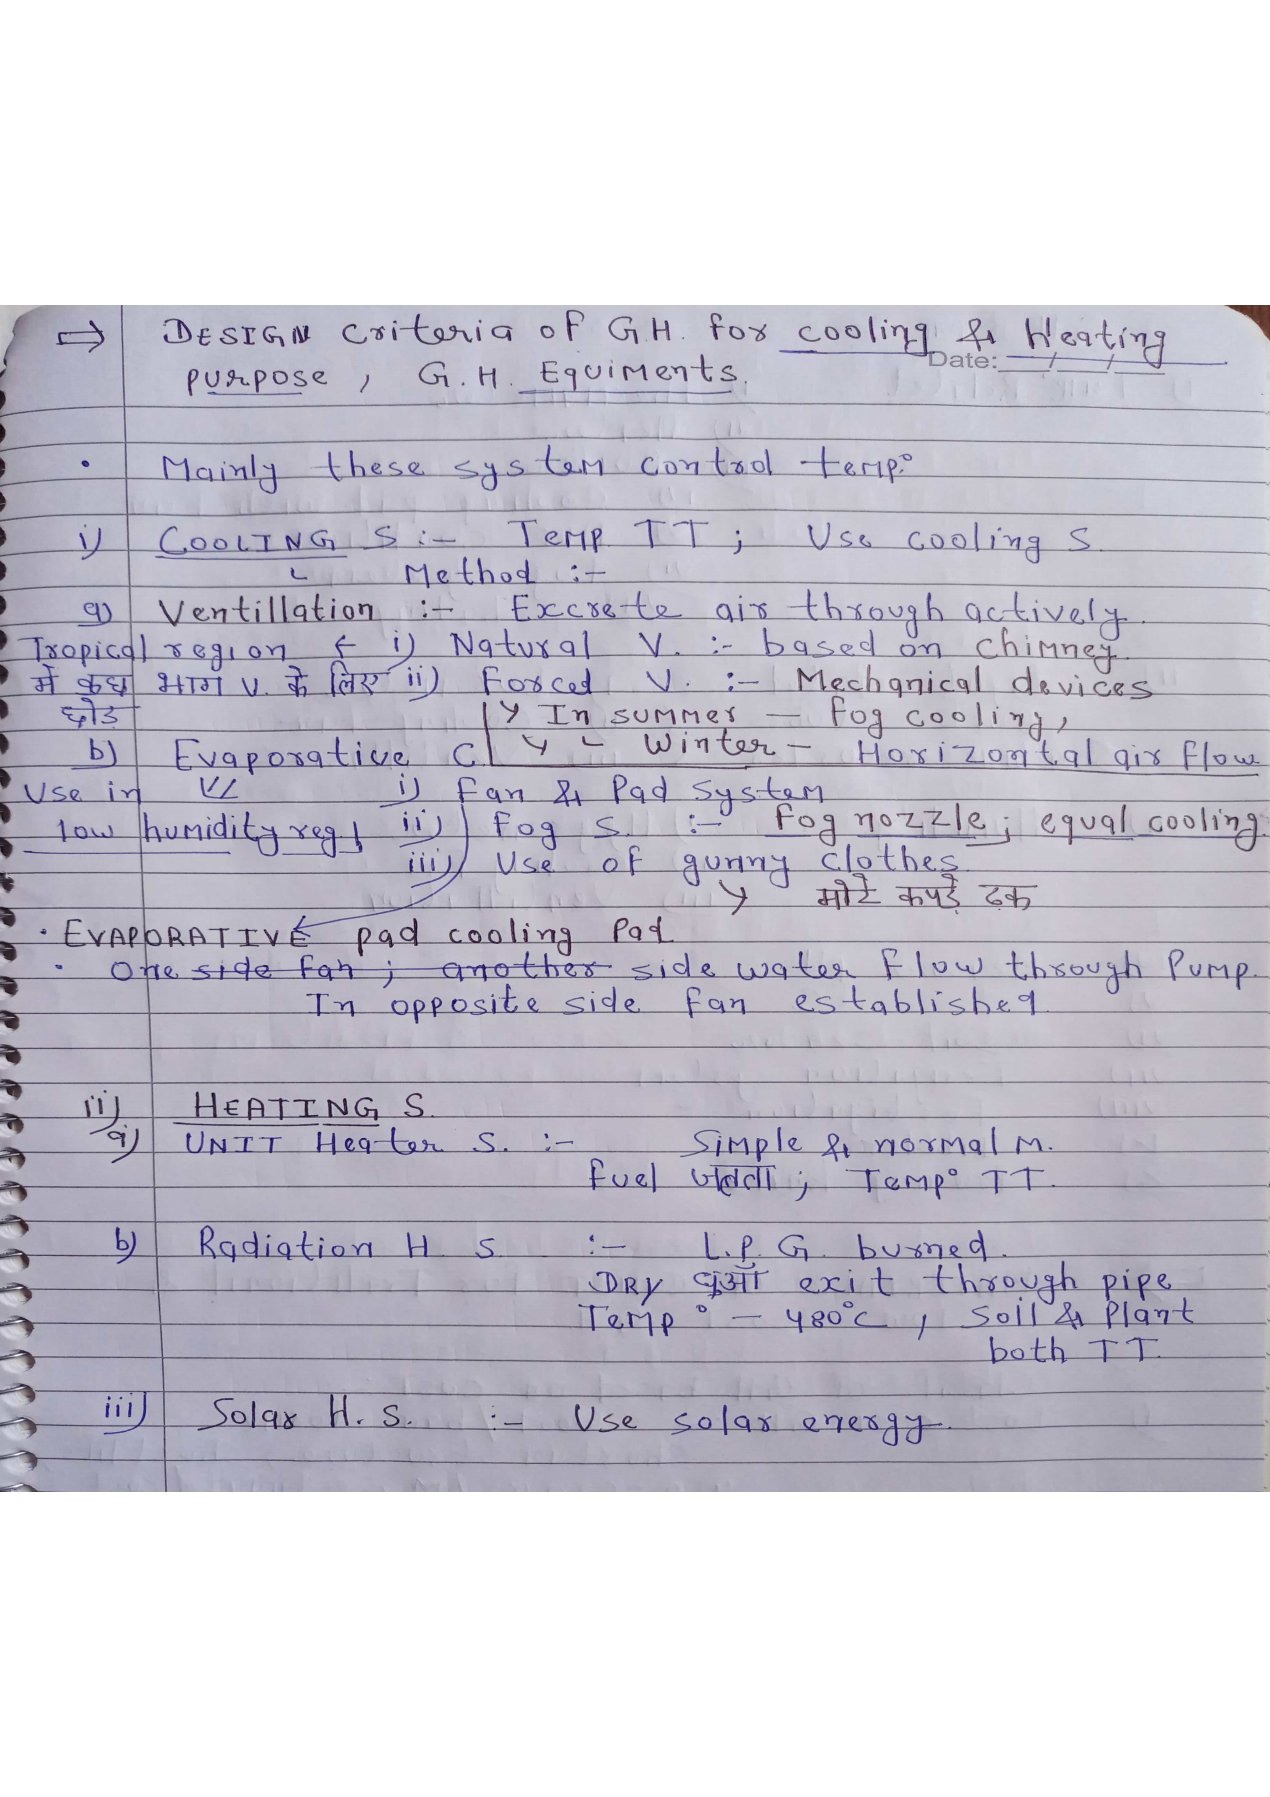 ⇒ DESIGN Criteria of G.H. for cooling & Heating
Date: __/__/__
purpose, G.H. Equiments.
• Mainly these system control temp.°
i) COOLING S :- Temp TT; Use cooling S.
Method :-
a) Ventillation :- Excrete air through actively.
Tropical region ← i) Natural V. :- based on chimney.
में कुछ भाग V. के लिए ii) Forced V. :- Mechanical devices
छोड़ → In summer — fog cooling,
b) Evaporative C. → " Winter - Horizontal air flow
Use in i) Fan & Pad System
low humidity reg. ii) Fog S. :- Fog nozzle; equal cooling.
iii) Use of gunny clothes.
→ मोटे कपड़े ढक
• EVAPORATIVE pad cooling Pad
• One side fan; another side water flow through Pump.
In opposite side fan established.
ii) HEATING S.
a) UNIT Heater S. :- Simple & normal M.
fuel जलता; Temp° TT.
b) Radiation H. S. :- L.P.G. burned.
DRY धुआँ exit through pipe
Temp° - 480°C, Soil & Plant
both TT.
iii) Solar H.S. :- Use solar energy.